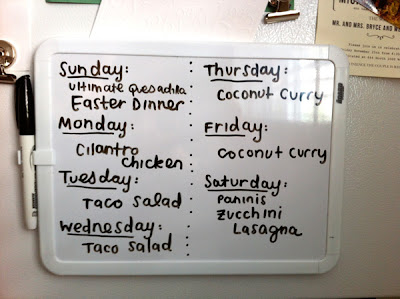 Sunday:
Ultimate Quesadilla
Easter Dinner
Monday:
Cilantro
Chicken
Tuesday:
Taco Salad
Wednesday:
Taco Salad
Thursday:
Coconut Curry
Friday:
Coconut Curry
Saturday:
Paninis
Zucchini
Lasagna
MR. AND MRS. BRYCE AND